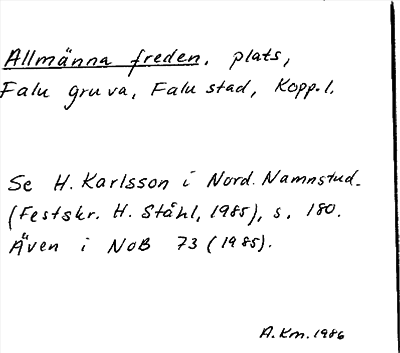 Allmänna freden, plats,
Falu gruva, Falu stad, Kopp.l.
Se H. Karlsson i Nord. Namnstud.
(Festskr. H. Ståhl, 1985), s. 180.
Även i NoB 73 (1985).
A.Km. 1986